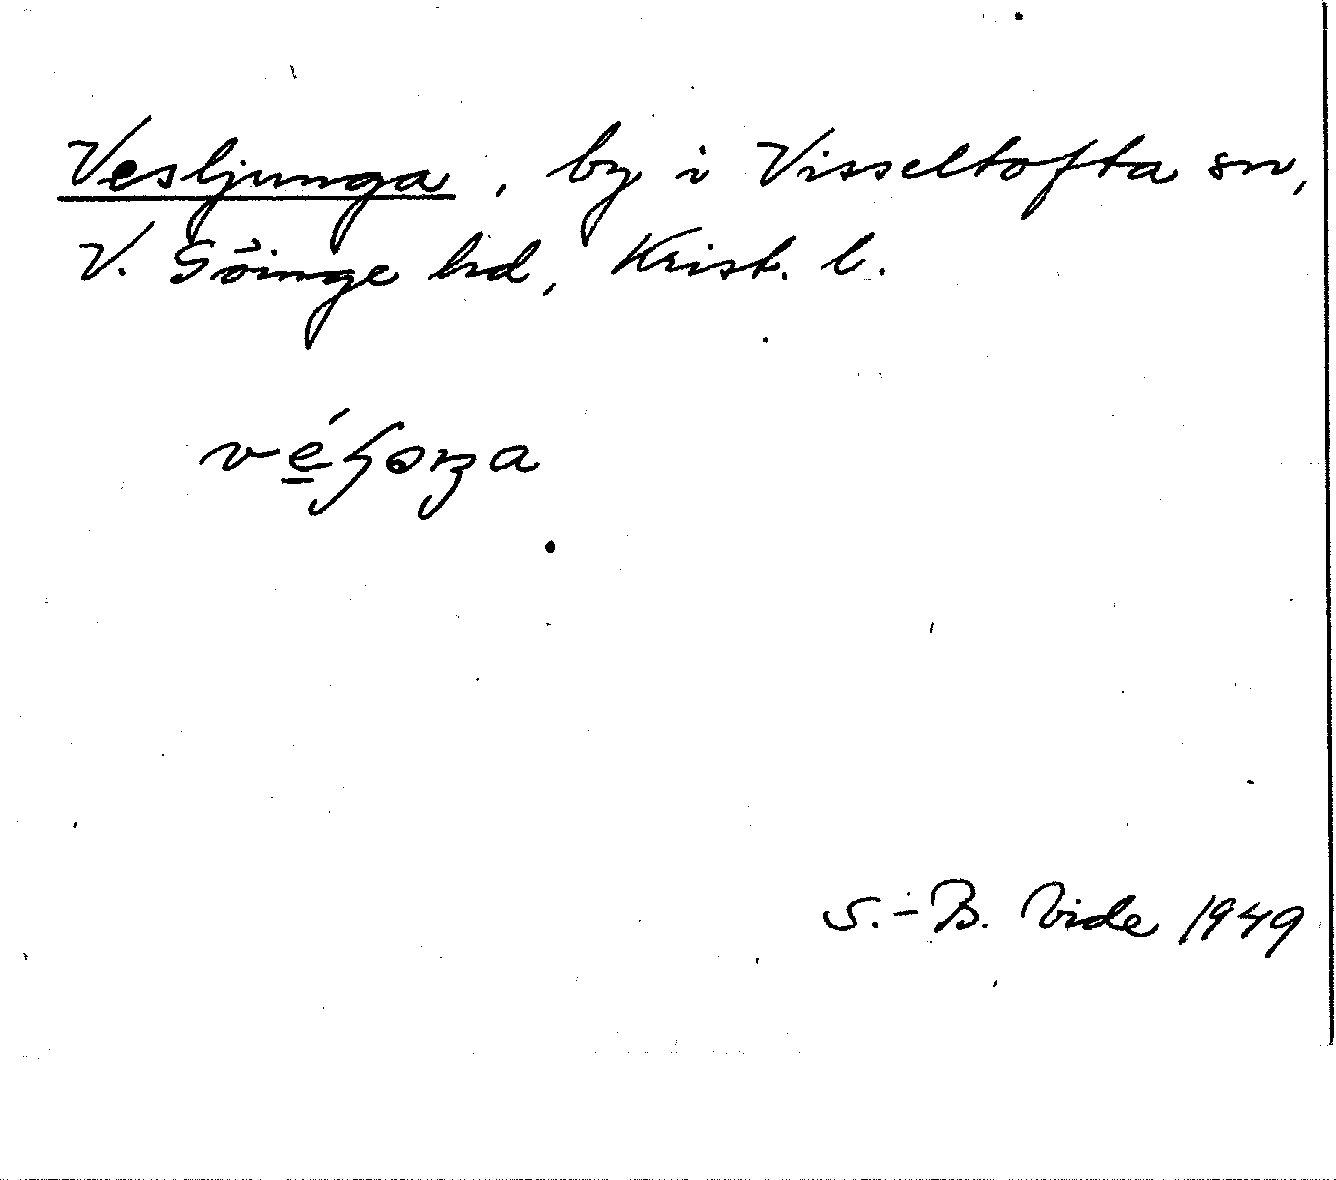 Vesljunga, by i Visseltofta sn,
V. Göinge hd, Krist. l.
S.-B. Vide 1949